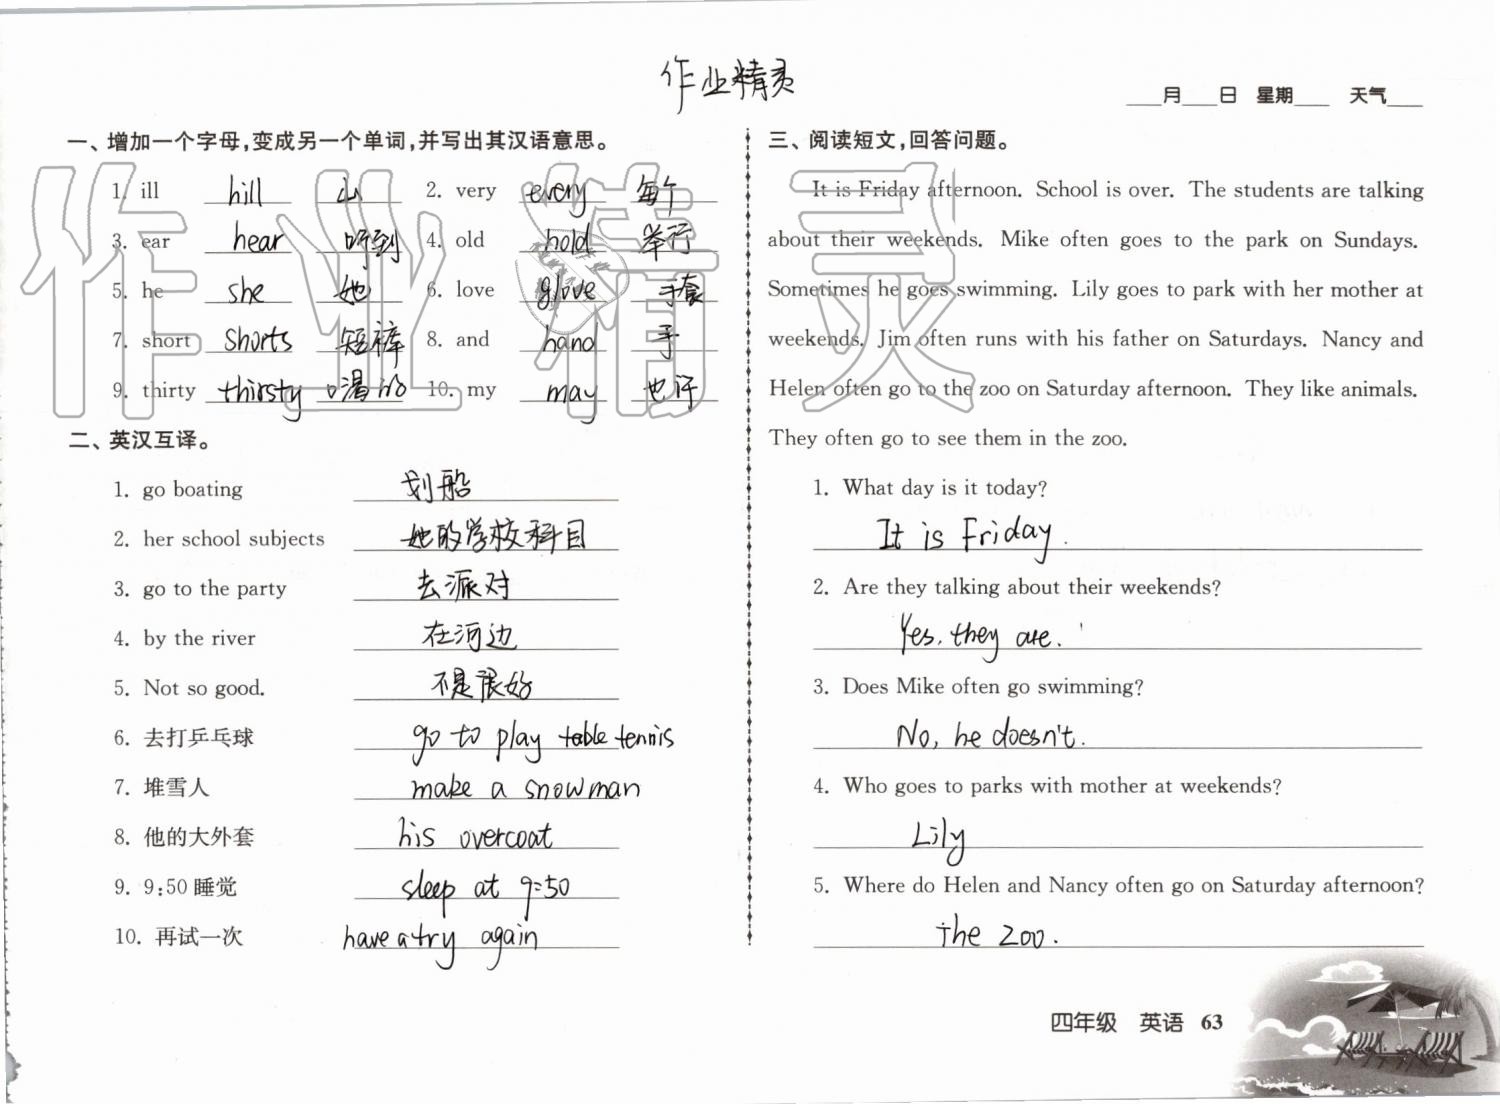 作业精灵
___月___日 星期___ 天气___
一、增加一个字母,变成另一个单词,并写出其汉语意思。
1. ill hill 山 2. very every 每个
3. ear hear 听到 4. old hold 举行
5. he she 她 6. love glove 手套
7. short shorts 短裤 8. and hand 手
9. thirty thirsty 口渴的 10. my may 也许
二、英汉互译。
1. go boating 划船
2. her school subjects 她的学校科目
3. go to the party 去派对
4. by the river 在河边
5. Not so good. 不是很好
6. 去打乒乓球 go to play table tennis
7. 堆雪人 make a snowman
8. 他的大外套 his overcoat
9. 9:50 睡觉 sleep at 9:50
10. 再试一次 have a try again
三、阅读短文,回答问题。
It is Friday afternoon. School is over. The students are talking
about their weekends. Mike often goes to the park on Sundays.
Sometimes he goes swimming. Lily goes to park with her mother at
weekends. Jim often runs with his father on Saturdays. Nancy and
Helen often go to the zoo on Saturday afternoon. They like animals.
They often go to see them in the zoo.
1. What day is it today?
It is Friday.
2. Are they talking about their weekends?
Yes, they are.
3. Does Mike often go swimming?
No, he doesn't.
4. Who goes to parks with mother at weekends?
Lily
5. Where do Helen and Nancy often go on Saturday afternoon?
the zoo.
四年级 英语 63
作业精灵